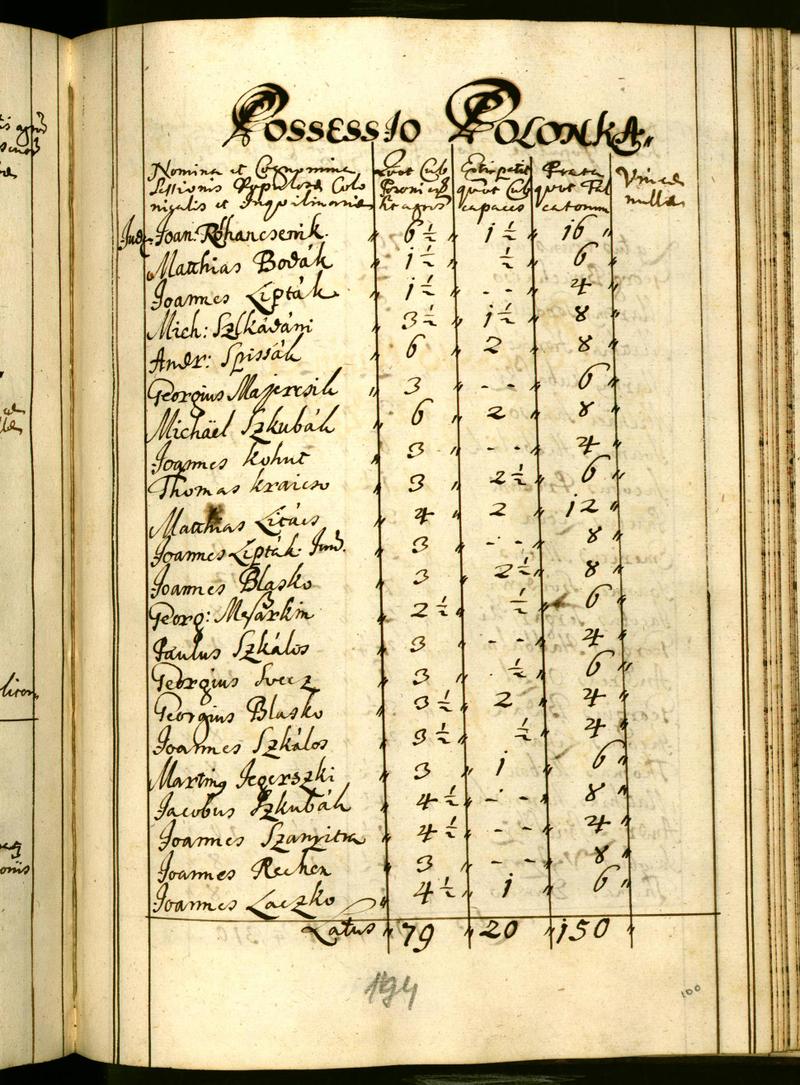 Possessio Polonka
Nomina et Cognomina Quot Cub Extirpatit Prata Vineæ
Sessionis Populoræ Colo Posonien quot Cub quot Fal nullæ
nicalis et Inquilinoris st agros capaces catorum
Jud. Joan: Rohancsenik " 6 1/2 " 1 1/2 " 16 "
Matthias Bodák " 1 1/2 " 1/2 " 6 "
Joannes Lipták " 1 1/2 " - - " 4 "
Mich: Szlkádáni " 3 1/2 " 1 1/2 " 8 "
Andr: Spissák " 6 " 2 " 8 "
Georgius Majercsik " 3 " - - " 6 "
Michäel Szkubák " 6 " 2 " 8 "
Joannes Kohut " 3 " - - " 4 "
Thomas Kraicso " 3 " 2 1/2 " 6 "
Matthias Litács " 4 " 2 " 12 "
Joannes Lipták Jun. " 3 " - - " 8 "
Joannes Blasko " 3 " 2 1/2 " 8 "
Georg: Mesárkin " 2 1/2 " 1/2 " 6 "
Paulus Szkálos " 3 " - - " 4 "
Georgius Svecz " 3 " 1/2 " 6 "
Georgius Blasko " 3 1/2 " 2 " 4 "
Joannes Szkálos " 3 1/2 " 1/2 " 4 "
Martinq Jegerszki " 3 " 1 " 6 "
Jacobus Szkubák " 4 1/2 " - - " 8 "
Joannes Szanyitra " 4 1/2 " - - " 4 "
Joannes Rechen " 3 " - - " 8 "
Joannes Laczko " 4 1/2 " 1 " 6 "
Latus " 79 " 20 " 150 "
194
100